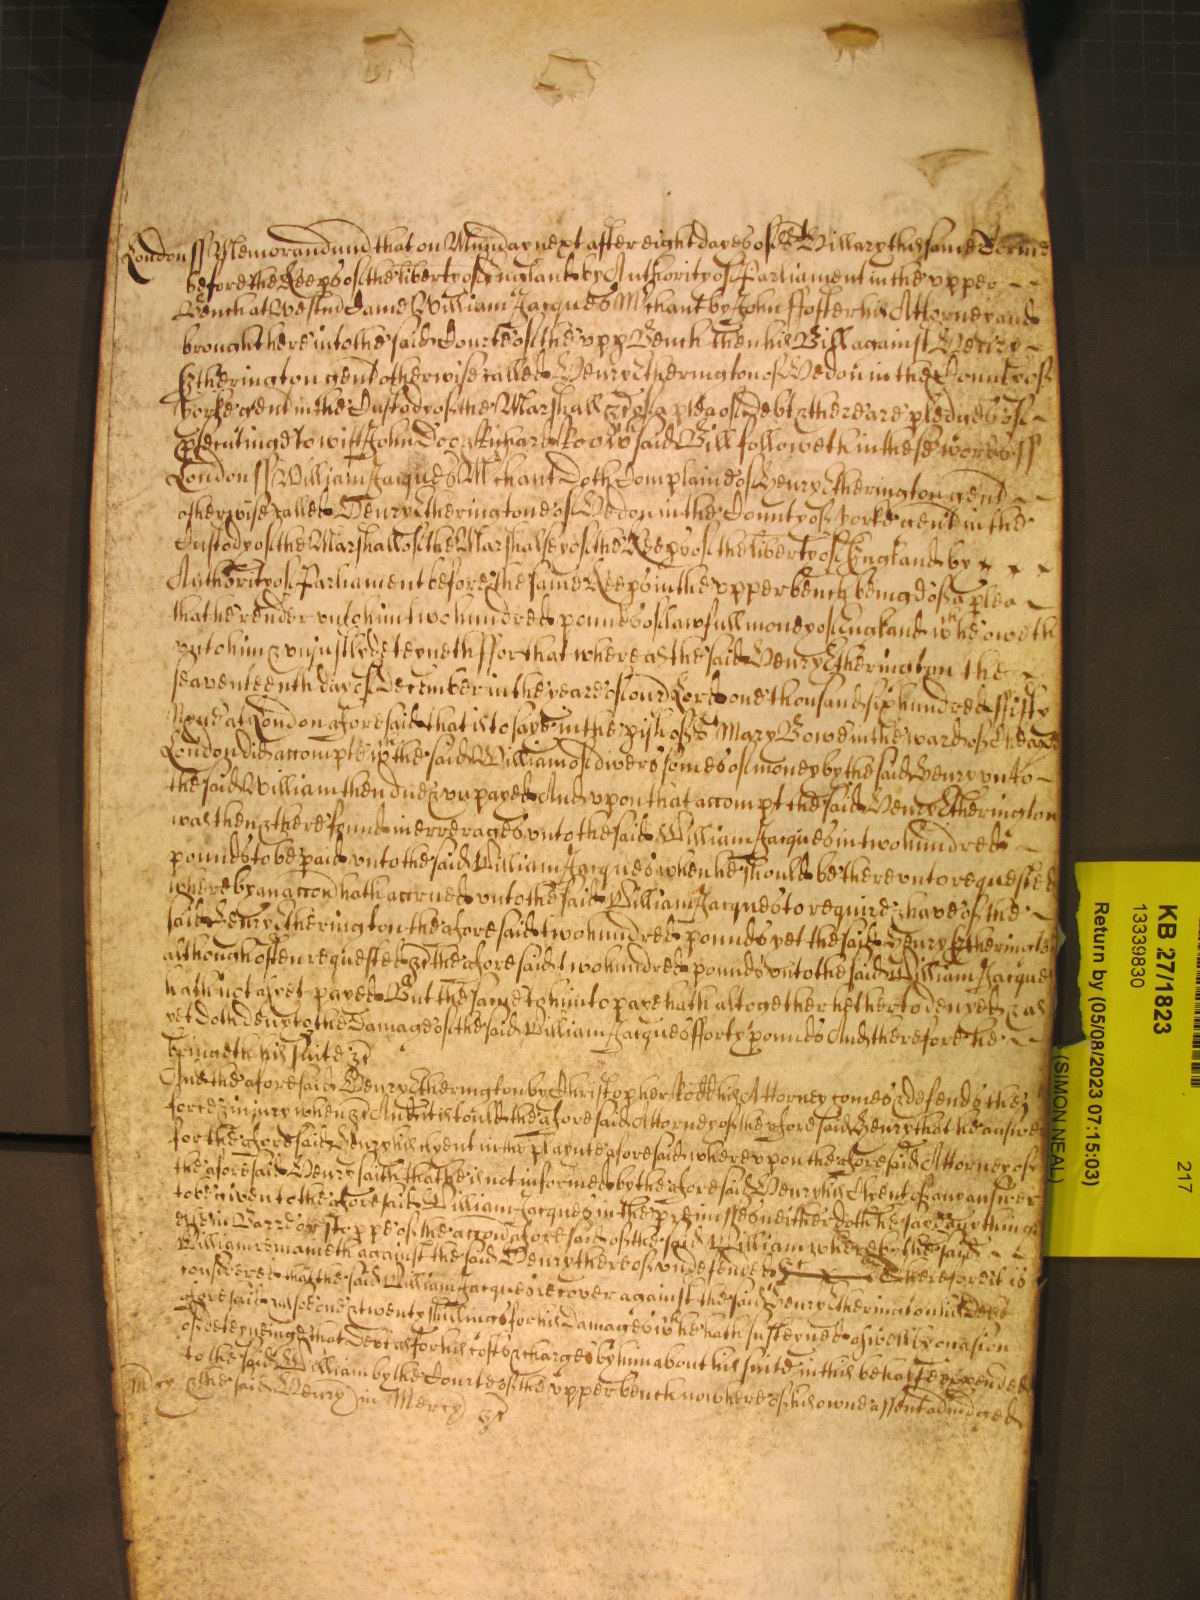 London ss Memorandum that on Munday next after eight dayes of St Hillary this same Terme
before the Keeps of the liberty of England by Authority of Parliament in the upper
Bench at Westm Came William Jacques Mchant by John Ffoster his Attorney and
brought here into the said Courte of the upp Bench then his Bill against Henry
Etherington gent otherwise called Henry Etherington of Hedon in the County of
Yorke gent in the Custody of the Marshall &c of a plea of debt & there are pledges of
psecutinge to witt John Doo & Richard Roo wch said Bill followeth in these words ss
London ss William Jacques Mchant Doth Complaine of Henry Etherington gent
otherwise called Henry Etherington of Hedon in the County of Yorke gent in the
Custody of the Marshall of the Marshalsey of the Keeps of the liberty of England by
Authority of Parliament before the same Keeps in the upper bench being of a plea
that he render unto him two hundred pounds of lawfull money of England wch he oweth
unto him & unjustly deteyneth Ffor that whereas the said Henry Etherington the
seaventeenth day of December in the yeare of our Lord one thousand six hundred ffifty
at London aforesaid that is to saye in the pish of St Mary Bowe in the ward of Cheape
London did accompte wth the said William of divers somes of money by the said Henry unto
the said William then due & unpayed And upon that accompt the said Henry Etherington
was then & there found in errerages unto the said William Jacques in two hundred
pounds to be paid unto the said William Jacques when he should be thereunto requested
whereby an accon hath accrued unto the said William Jacques to require & have of the
said Henry Etherington the aforesaid two hundred pounds yet the said Henry Etherington
although often requested &c the aforesaid two hundred pounds unto the said William Jacques
hath not as yet payed But the same to him to paye hath altogether hetherto denyed & as
yet doth deny to the Damage of the said William Jacques fforty pounds And therefore he
bringeth his suite &c
And the aforesaid Henry Etherington by Christopher his Attorney comes & defends the
force & injury when &c And the aforesaid Attorney of the aforesaid Henry that he answer
for the aforesaid Henry his clyent in the playnte aforesaid whereupon the aforesaid Attorney of
the aforesaid Henry saith that he is not informed by the aforesaid Henry his Clyent of any answer
to be given to the aforesaid William Jacques in the premisses neither doth he say any thinge
else in Barre or stoppe of the accon aforesaid of the said William whereby the said
William remaineth against the said Henry thereof undefended Therefore it is
considered that the said William Jacques recover against the said Henry Etherington his Debt
aforesaid & alsoe one & twenty shillings for his Damages wch he hath susteyned aswell by occasion
of deteyneinge that Debt as for his costs & charges by him about his suite in this behalfe expended
to the said William by the Courte of the upper bench now here of his owne assent adiudged
mcy & the said Henry in Mercy &c
KB 27/1823
13339830
Return by (05/08/2023 07:15:03)
(SIMON NEAL)
217